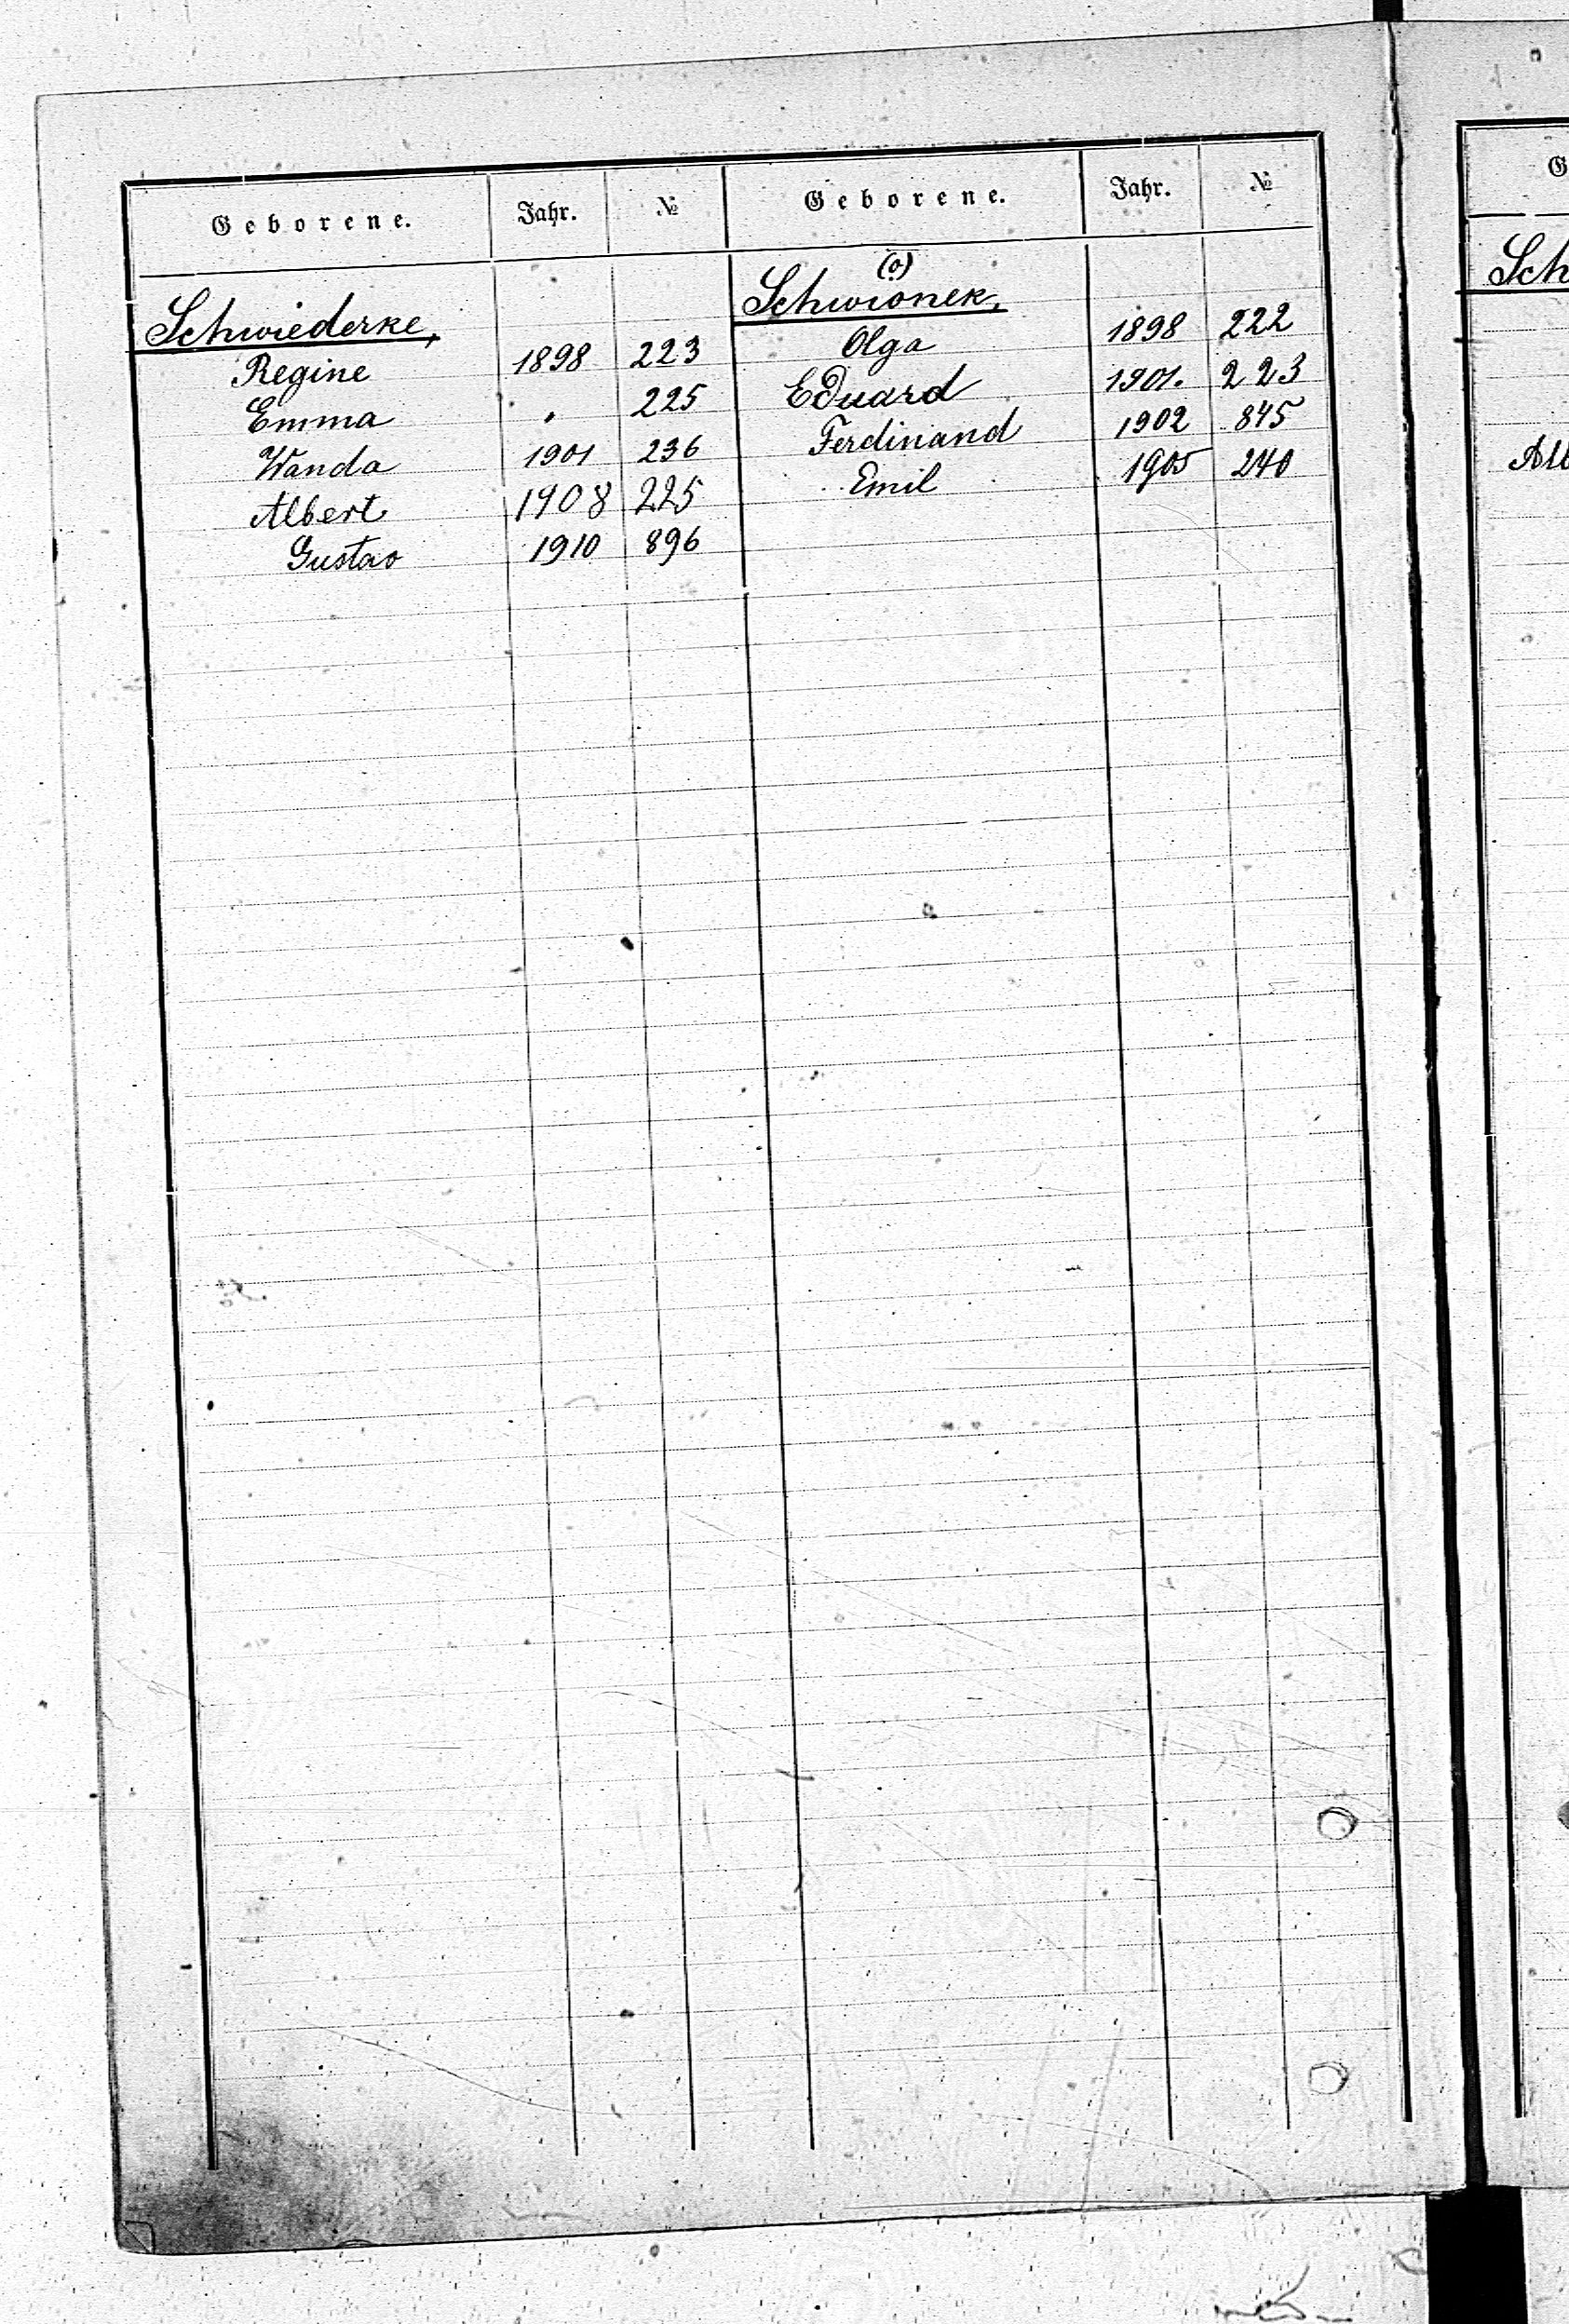 Geborene. Jahr. №
Schwiederke,
Regine 1898 223
Emma . 225
Wanda 1901 236
Albert 1908 225
Gustav 1910 896
Geborene. Jahr. №
(o)
Schwionek,
Olga 1898 222
Eduard 1901. 223
Ferdinand 1902 845
Emil 1905 240
G
Sch
Alb